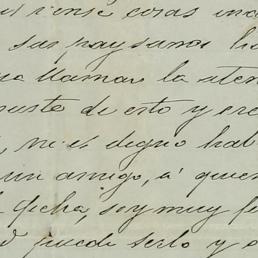 tiene cosas
sus paysanos ha
llamar la aten
de esto y cre
ni es digno hab
un amigo, á quien
fecha, soy muy fe
puede serlo y